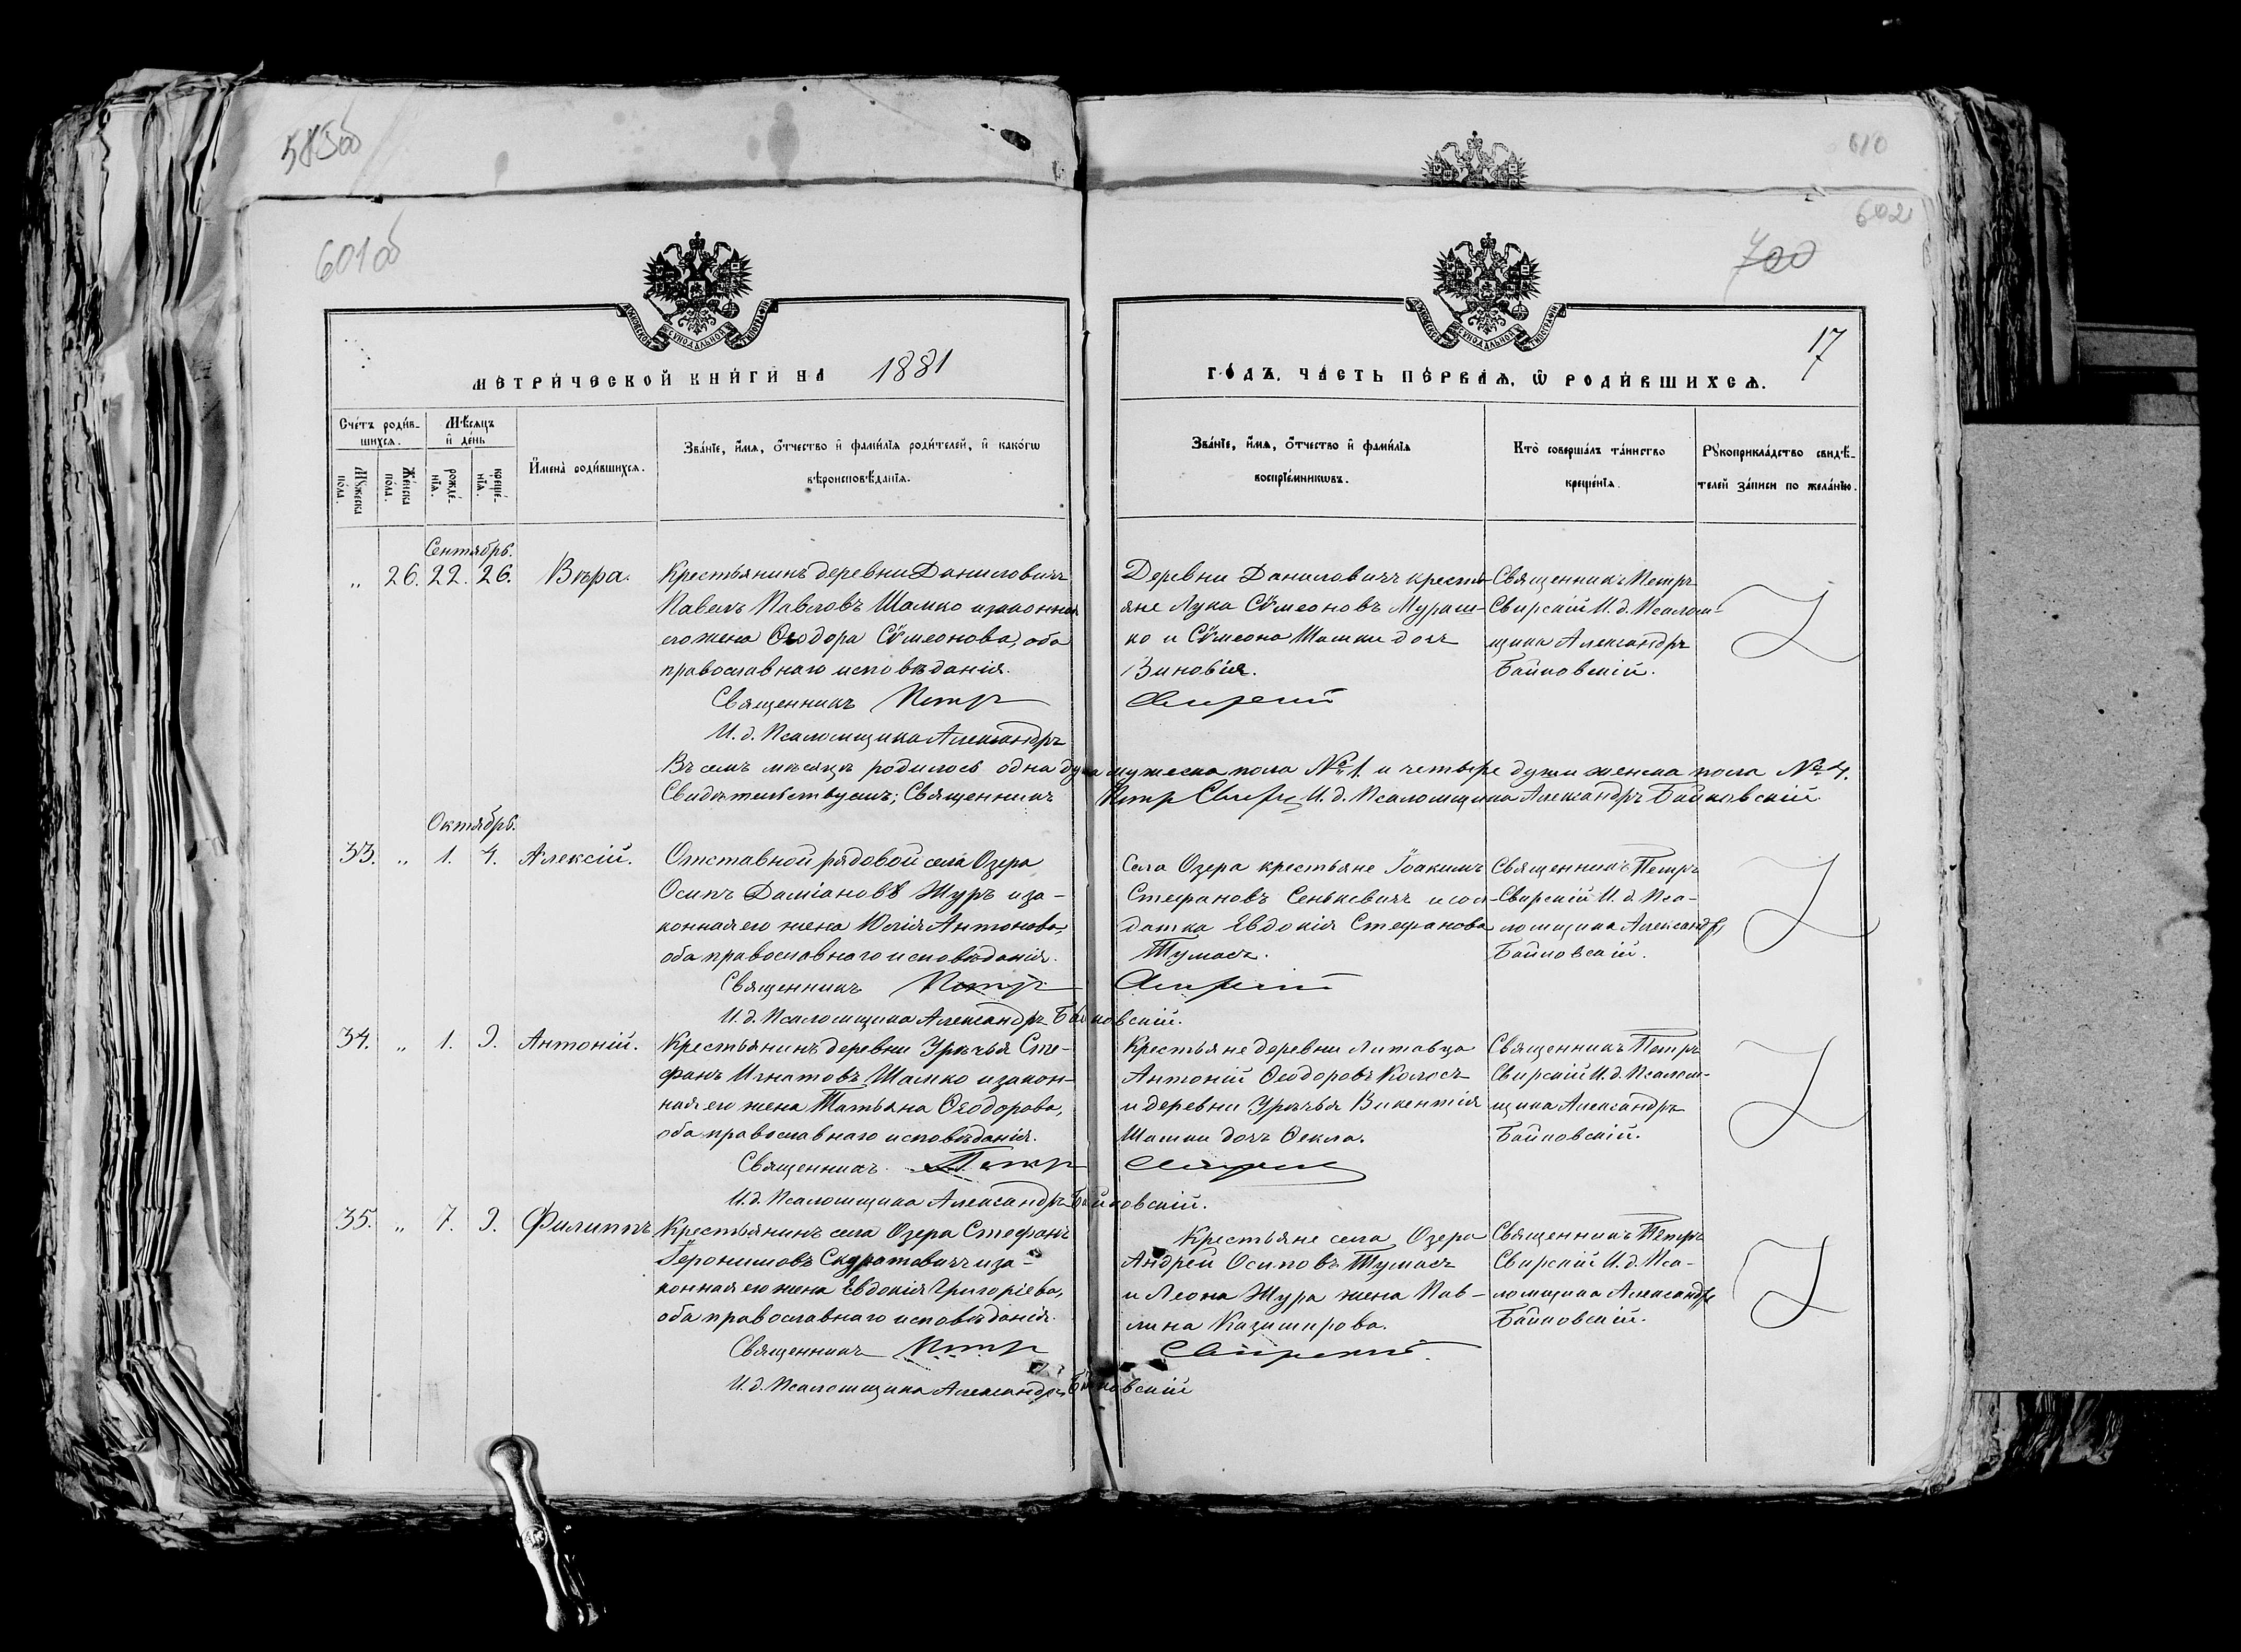 583об
610
601об
602
700
17
МОСКОВСКОЙ СѴНОДАЛЬНОЙ ТИПОГРАФІИ
МОСКОВСКОЙ СѴНОДАЛЬНОЙ ТИПОГРАФІИ
МЕТРИЧЕСКОЙ КНИГИ НА 1881
ГОДЪ, ЧАСТЬ ПЕРВАЯ, Ѡ РОДИВШИХСЯ.
Счетъ родив-
шихся.
Мужеска пола.
Женска пола.
Мѣсяцъ
и день
рожде-
нія.
креще-
нія.
Имена родившихся.
Званіе, имя, отчество и фамилія родителей, и какогѡ
вѣроисповѣданія.
Званіе, имя, отчество и фамилія
воспріемникѡвъ.
Кто совершалъ таинство
крещенія.
Рукоприкладство свидѣ-
телей записи по желанію.
Сентябрь.
„ 26. 22. 26. Вѣра.
Крестьянинъ деревни Даниловичъ
Павелъ Павловъ Шамко и законная
его жена Ѳеодора Сѵмеонова, оба
православнаго исповѣданія.
Священникъ Петръ
И. д. Псаломщика Александръ
Деревни Даниловичъ кресть-
яне Лука Сѵмеоновъ Мураш-
ко и Сѵмеона Шамки дочь
Зиновія.
Свирскій
Священникъ Петръ
Свирскій И. д. Псалом-
щика Александръ
Байковскій.
Въ семъ мѣсяцѣ родилось одна душа мужеска пола № 1. и четыре души женска пола № 4.
Свидѣтельствуемъ; Священникъ Петръ Свирскій И. д. Псаломщика Александръ Байковскій.
Октябрь.
33. „ 1. 4. Алексій.
Отставной рядовой села Озера
Осипъ Даміановъ Журъ и за-
конная его жена Юлія Антонова,
оба православнаго исповѣданія.
Священникъ Петръ
И. д. Псаломщика Александръ Байковскій.
Села Озера крестьяне Іоакимъ
Стефановъ Сенькевичъ и сол-
датка Евдокія Стефанова
Тумасъ.
Свирскій
Священникъ Петръ
Свирскій И. д. Пса-
ломщика Александръ
Байковскій.
34. „ 1. 9. Антоній.
Крестьянинъ деревни Урѣчья Сте-
фанъ Игнатовъ Шамко и закон-
ная его жена Татьяна Ѳеодорова,
оба православнаго исповѣданія.
Священникъ Петръ
И. д. Псаломщика Александръ Байковскій.
Крестьяне деревни Литовца
Антоній Ѳеодоровъ Колосъ
и деревни Урѣчья Викентія
Шамки дочь Ѳекла.
Свирскій
Священникъ Петръ
Свирскій И. д. Псалом-
щика Александръ
Байковскій.
35. „ 7. 9. Филиппъ
Крестьянинъ села Озера Стефанъ
Іеронимовъ Скуратовичъ и за-
конная его жена Евдокія Григоріева,
оба православнаго исповѣданія.
Священникъ Петръ
И. д. Псаломщика Александръ Байковскій
Крестьяне села Озера
Андрей Осиповъ Тумасъ
и Леона Жура жена Пав-
лина Казимирова.
Свирскій.
Священникъ Петръ
Свирскій И. д. Пса-
ломщика Александръ
Байковскій.